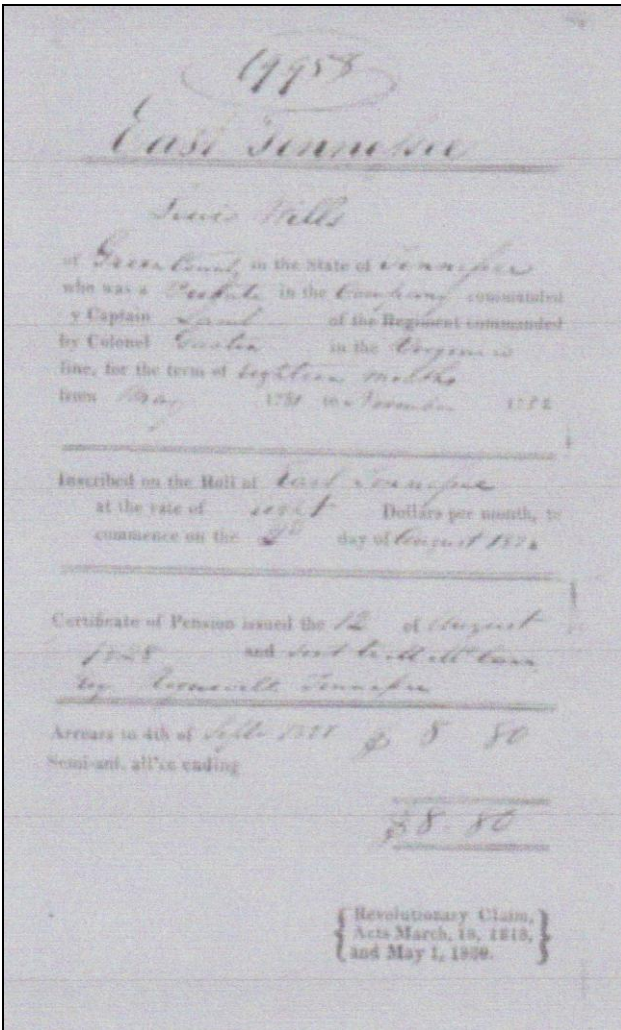 19958
East Tennessee
Lewis Wells
of Green County in the State of Tennessee
who was a Private in the Company commanded
y Captain Lamb of the Regiment commanded
by Colonel in the Virginia
line, for the term of eighteen months
from May 1781 to November 1782
Inscribed on the Roll of East Tennessee
at the rate of eight Dollars per month, to
commence on the 2d day of August 182
Certificate of Pension issued the 12 of August
1828 and sent to
Tennessee
Arrears to 4th of Septr 1828 $ 8 80
Semi-ant. all'ce ending
$8.80
Revolutionary Claim,
Acts March, 18, 1818,
and May 1, 1820.